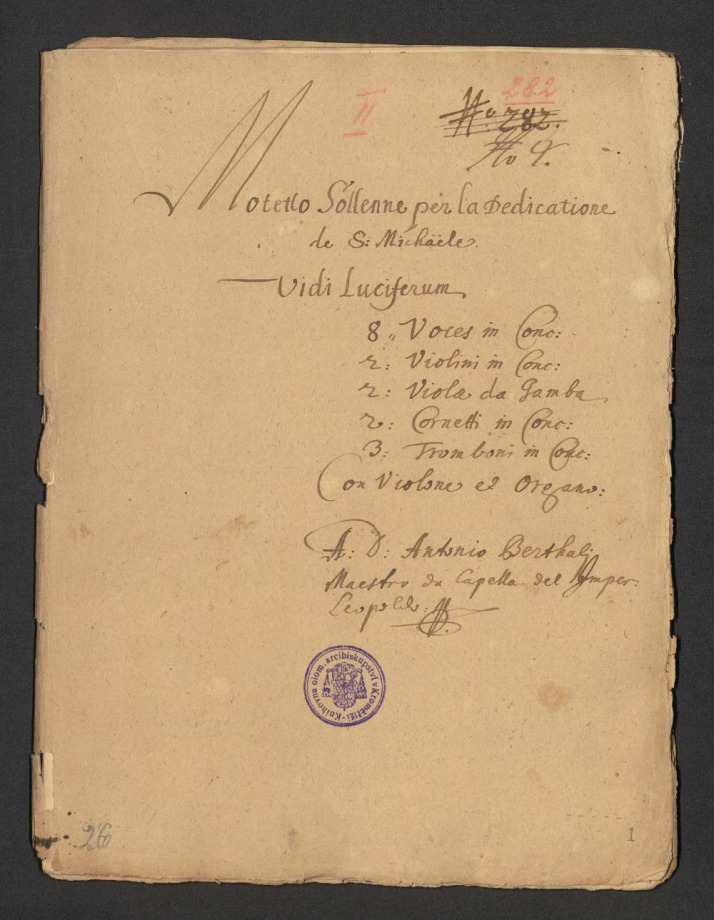 282
II
No 282.
No 9.
Motetto Sollenne per la Dedicatione
de S: Michaële.
Vidi Luciferum
8 „ Voces in Conc:
2: Violini in Conc:
2: Violæ da Gamba
2: Cornetti in Conc:
3: Tromboni in Conc:
Con Violone et Organo:
A: D: Antonio Berthali
Maestro da Capella del Imper:
Leopoldo:
Knihovna olom. arcibiskupství v Kroměříži
26
1